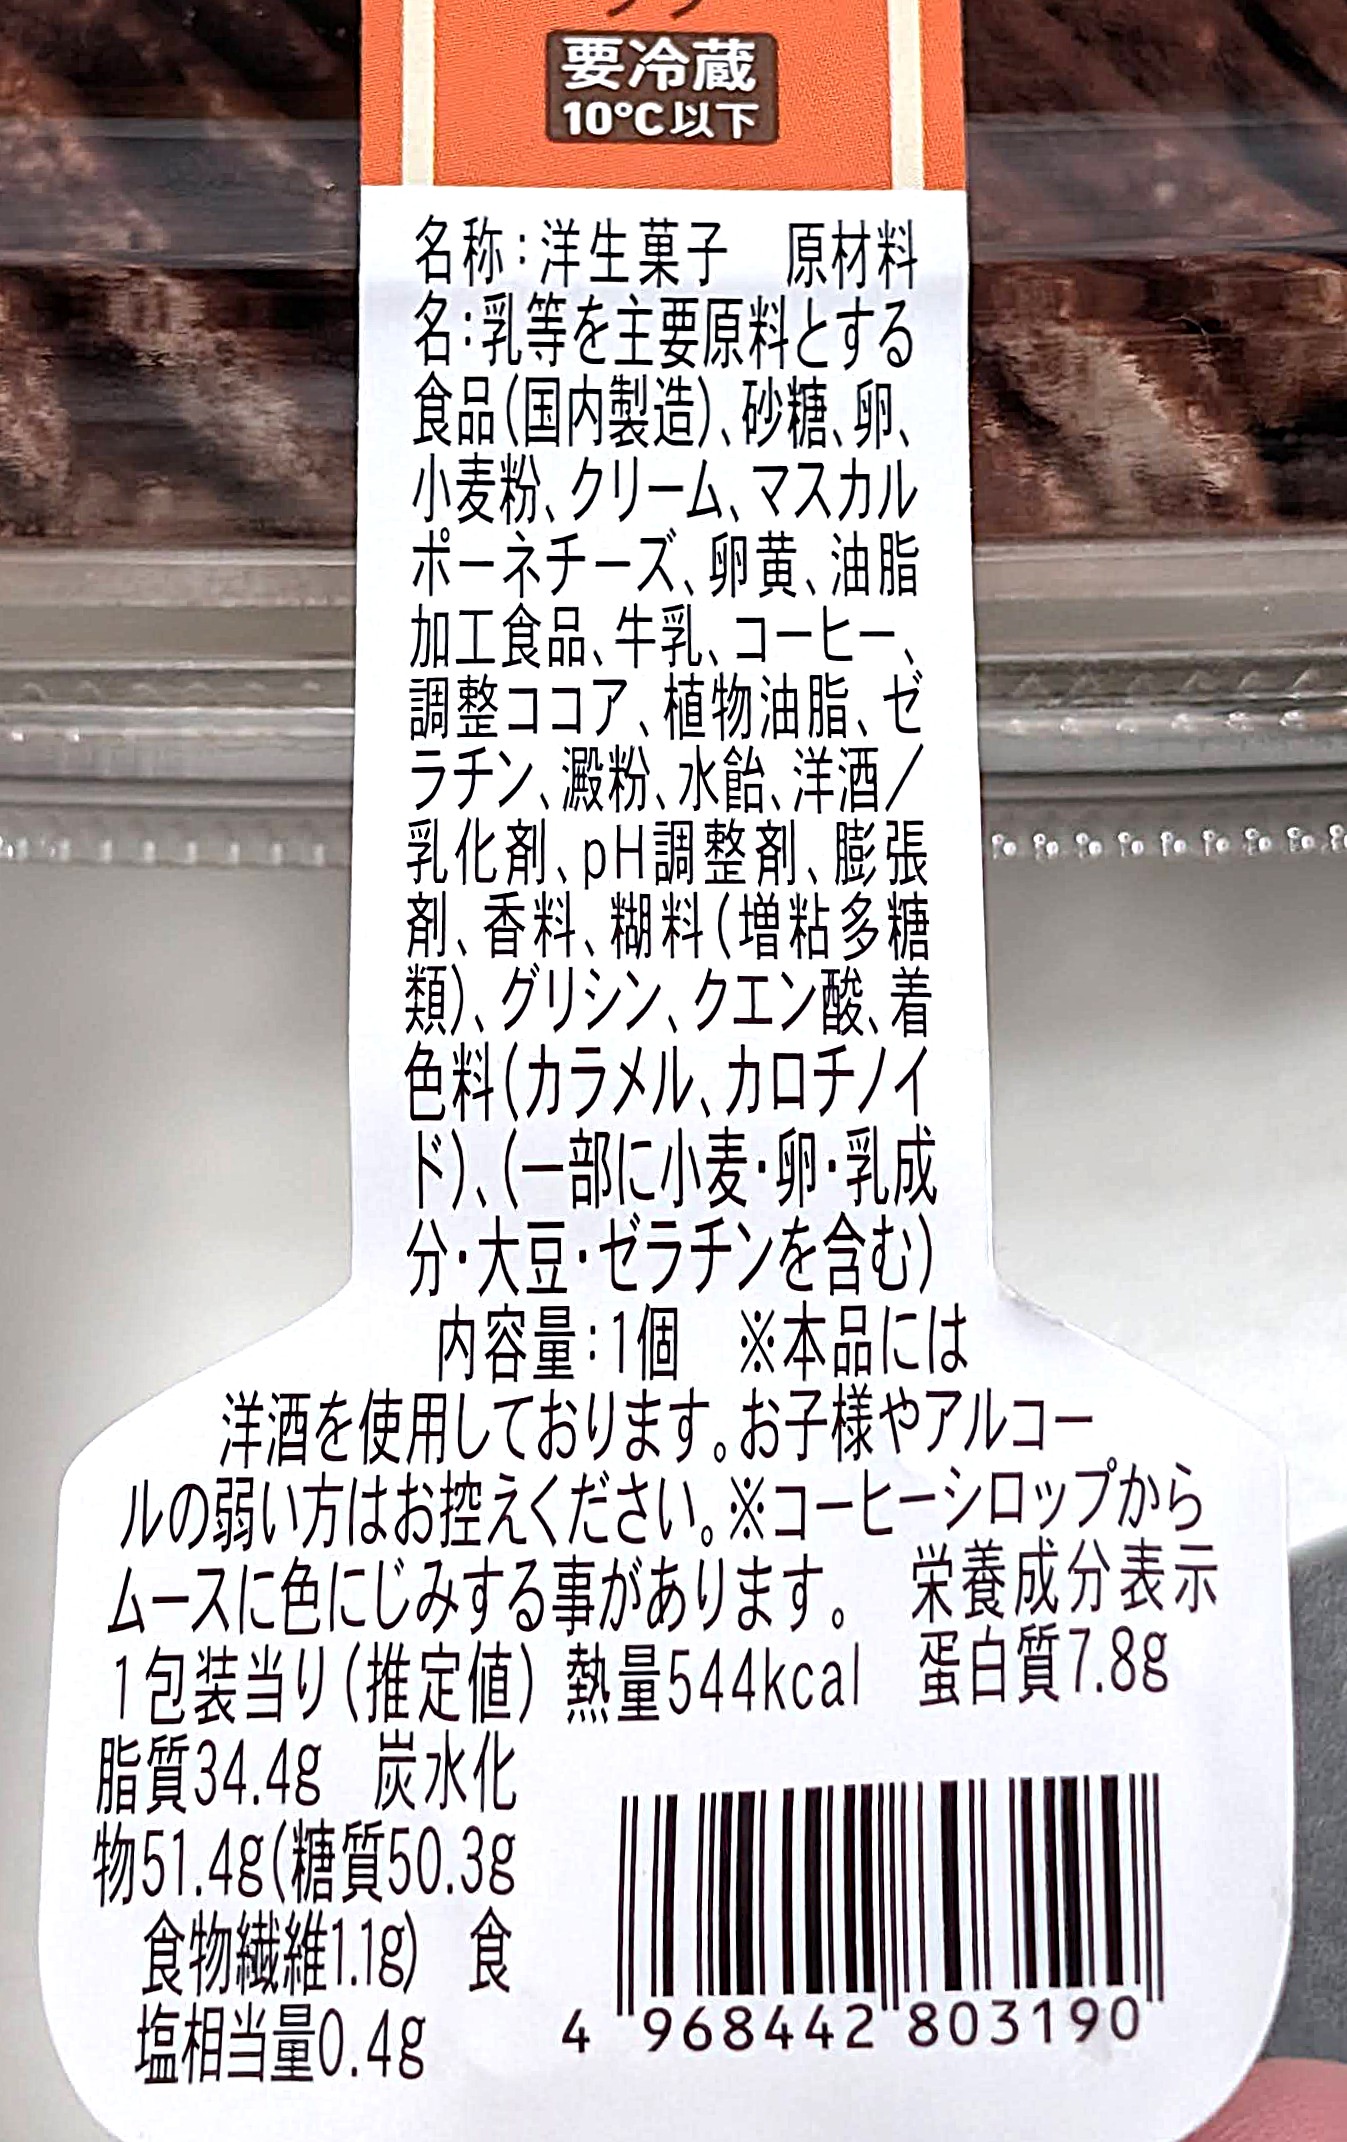 要冷蔵
10℃以下
名称:洋生菓子　原材料
名:乳等を主要原料とする
食品(国内製造)、砂糖、卵、
小麦粉、クリーム、マスカル
ポーネチーズ、卵黄、油脂
加工食品、牛乳、コーヒー、
調整ココア、植物油脂、ゼ
ラチン、澱粉、水飴、洋酒／
乳化剤、pH調整剤、膨張
剤、香料、糊料(増粘多糖
類)、グリシン、クエン酸、着
色料(カラメル、カロチノイ
ド)、(一部に小麦・卵・乳成
分・大豆・ゼラチンを含む)
内容量:1個　※本品には
洋酒を使用しております。お子様やアルコー
ルの弱い方はお控えください。※コーヒーシロップから
ムースに色にじみする事があります。　栄養成分表示
1包装当り(推定値) 熱量544kcal　蛋白質7.8g
脂質34.4g　炭水化
物51.4g(糖質50.3g
食物繊維1.1g)　食
塩相当量0.4g
4 968442 803190